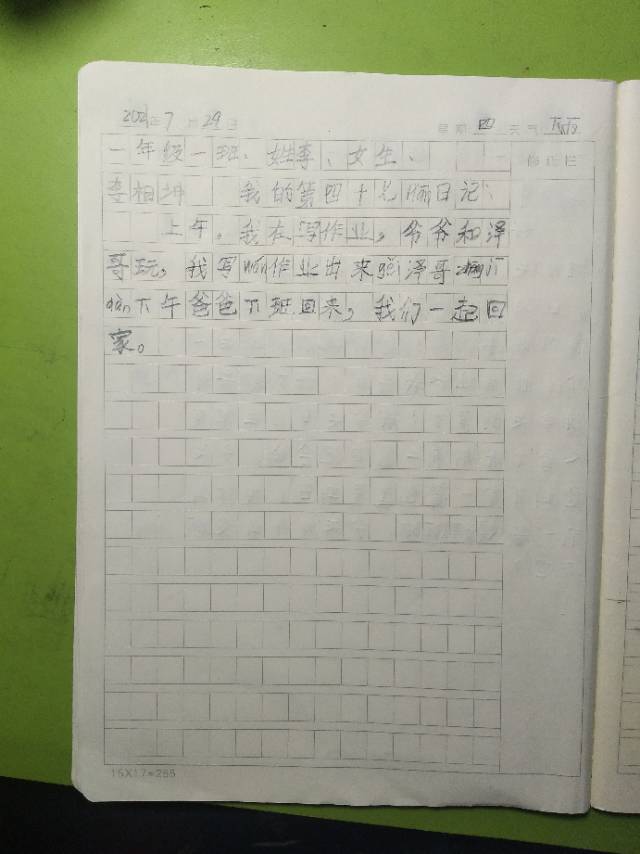 2021年7月29日 星期四 天气
一年级一班、姓李、女生、 修正栏
李相 我的第四十九篇日记
上午，我在写作业，爷爷和泽
哥玩，我写 作业出来 泽哥
下午爸爸下班回来，我们一起回
家。
15X17=255